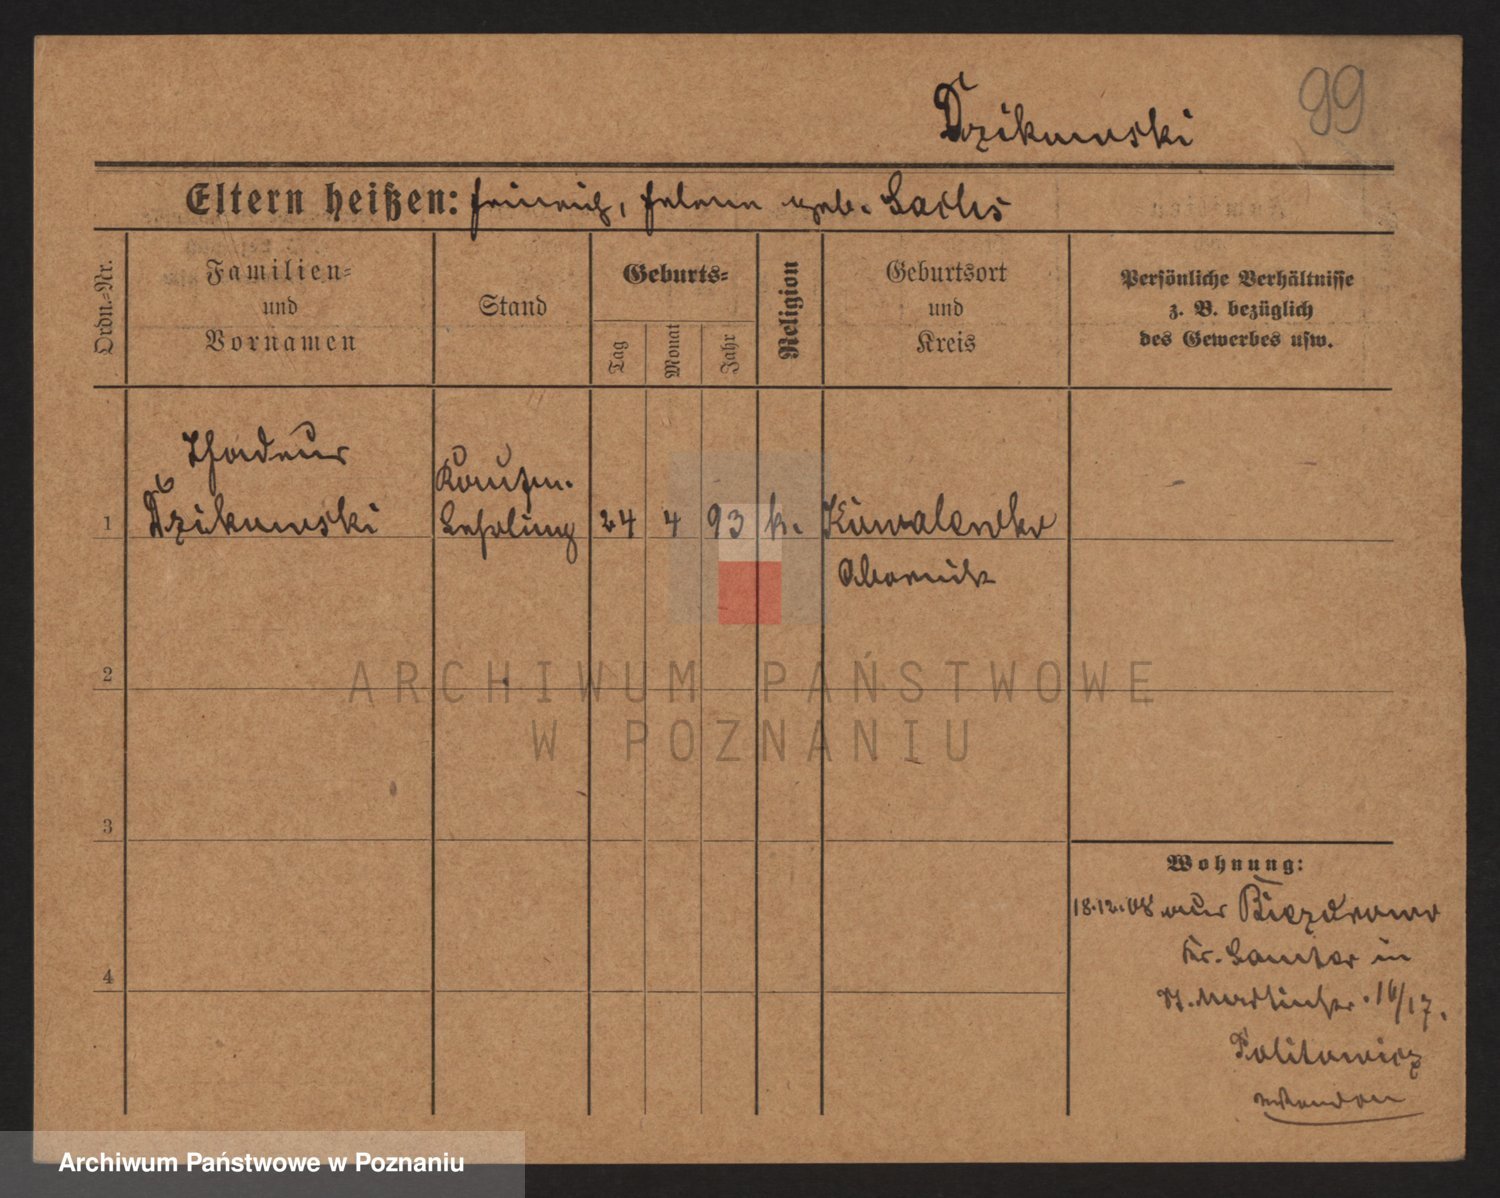 99
Dzikowski
Eltern heißen: Heinrich, Helene geb. Sachs
Ordn.-Nr.
Familien-
und
Vornamen
Stand
Geburts-
Tag
Monat
Jahr
Religion
Geburtsort
und
Kreis
Persönliche Verhältnisse
z. B. bezüglich
des Gewerbes usw.
Thadeus
Kaufm.
1 Dzikowski Lehrling 24 4 93 k. Kowalewko
Obornik
2
3
4
Wohnung:
18.12.08 aus Biezdrowo
Kr. Samter in
St. Martinstr. 16/17.
Politowicz
ARCHIWUM PAŃSTWOWE
W POZNANIU
Archiwum Państwowe w Poznaniu